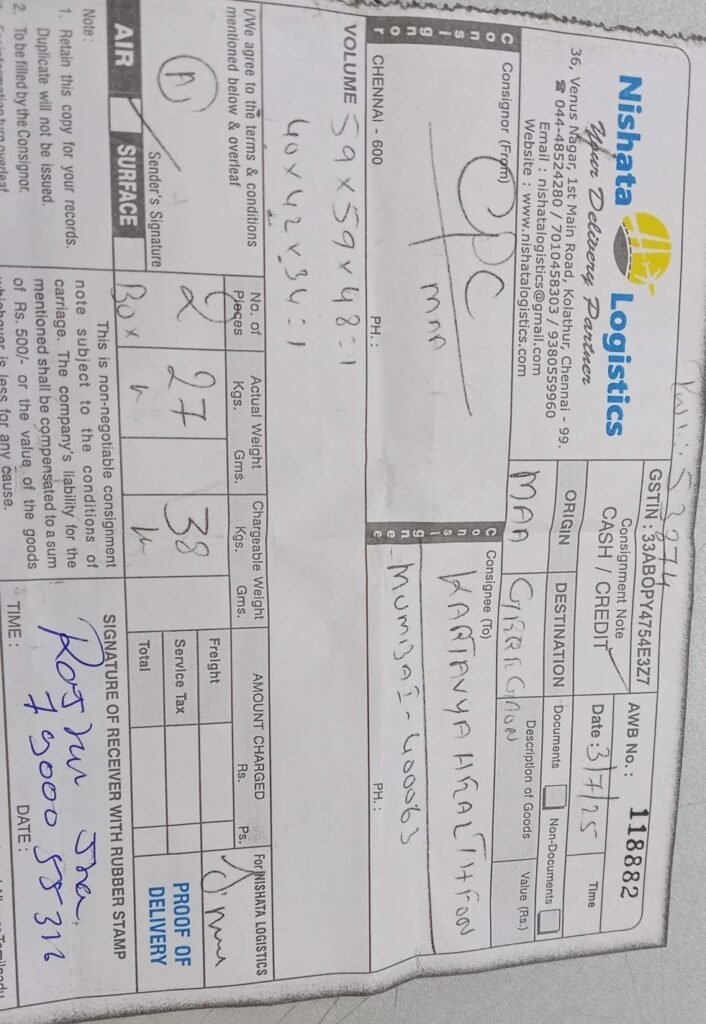 Nishata Logistics
Your Delivery Partner
36, Venus Nagar, 1st Main Road, Kolathur, Chennai - 99.
☎ 044-48524280 / 7010458303 / 9380559960
Email : nishatalogistics@gmail.com
Website : www.nishatalogistics.com
53274
GSTIN : 33ABOPY4754E3Z7
Consignment Note
CASH / CREDIT
AWB No. : 118882
Date : 3/7/25
Time
ORIGIN
MAA
DESTINATION
GOREGAON
Documents
Non-Documents
Description of Goods
Value (Rs.)
Consignor
Consignor (From)
CPC
MAA
CHENNAI - 600
PH. :
Consignee
Consignee (To)
KARTAVYA HEALTHEON
MUMBAI - 400063
PH. :
VOLUME 59 x 59 x 48 = 1
40 x 42 x 34 = 1
I/We agree to the terms & conditions
mentioned below & overleaf
Sender's Signature
AIR
SURFACE
No. of Pieces
2
Box
Actual Weight
Kgs. Gms.
27
Chargeable Weight
Kgs. Gms.
38
AMOUNT CHARGED
Rs. Ps.
Freight
Service Tax
Total
For NISHATA LOGISTICS
PROOF OF
DELIVERY
Note :
1. Retain this copy for your records.
Duplicate will not be issued.
2. To be filled by the Consignor.
This is non-negotiable consignment
note subject to the conditions of
carriage. The company's liability for the
mentioned shall be compensated to a sum
of Rs. 500/- or the value of the goods
whichever is less for any cause.
SIGNATURE OF RECEIVER WITH RUBBER STAMP
TIME :
DATE :